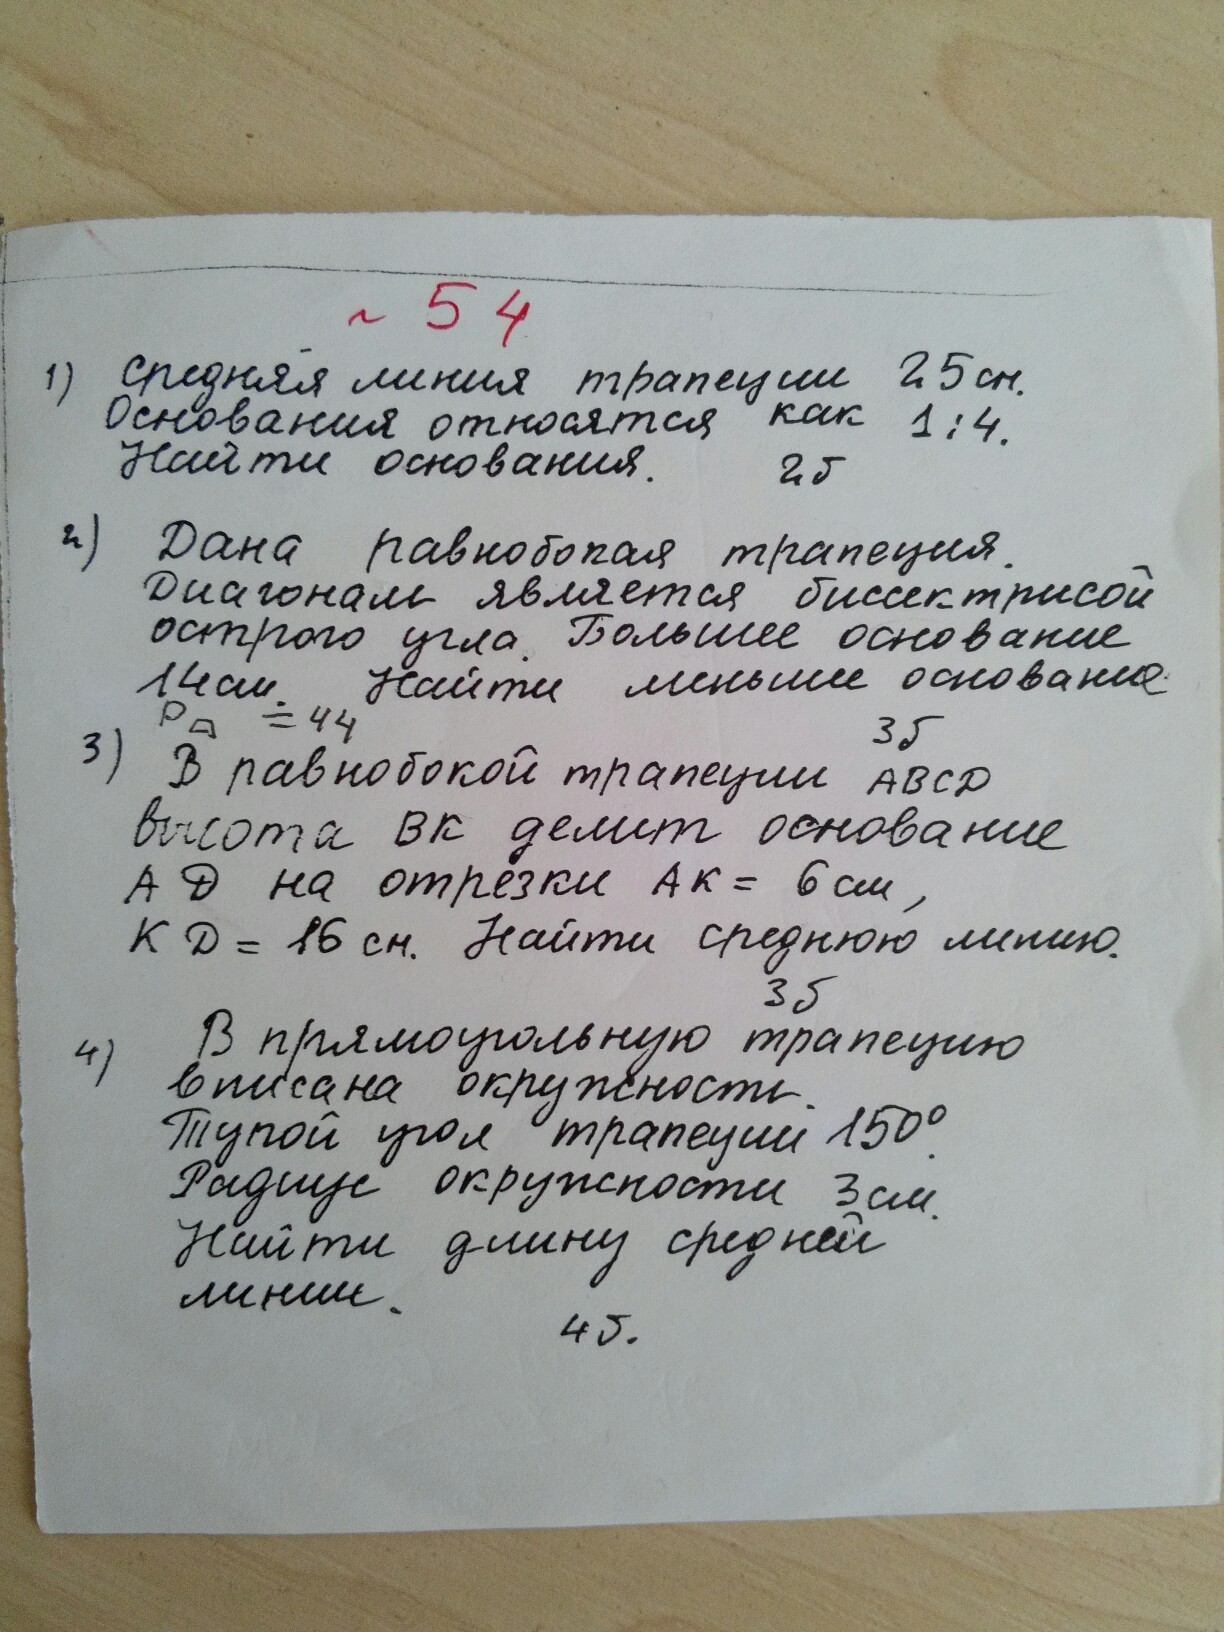 ~ 54
1) Средняя линия трапеции 25 см.
Основания относятся как 1:4.
Найти основания. 2б
2) Дана равнобокая трапеция.
Диагональ является биссектрисой
острого угла. Большее основание
14 см. Найти меньшее основание.
P = 44 3б
3) В равнобокой трапеции ABCD
высота BK делит основание
AD на отрезки AK = 6 см,
KD = 16 см. Найти среднюю линию.
3б
4) В прямоугольную трапецию
вписана окружность.
Тупой угол трапеции 150°.
Радиус окружности 3 см.
Найти длину средней
линии.
4б.